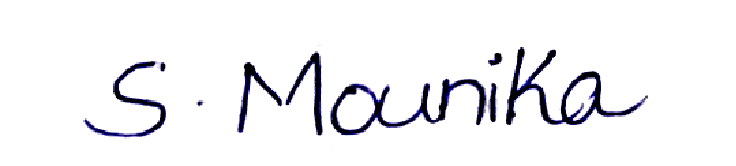 S. Mounika